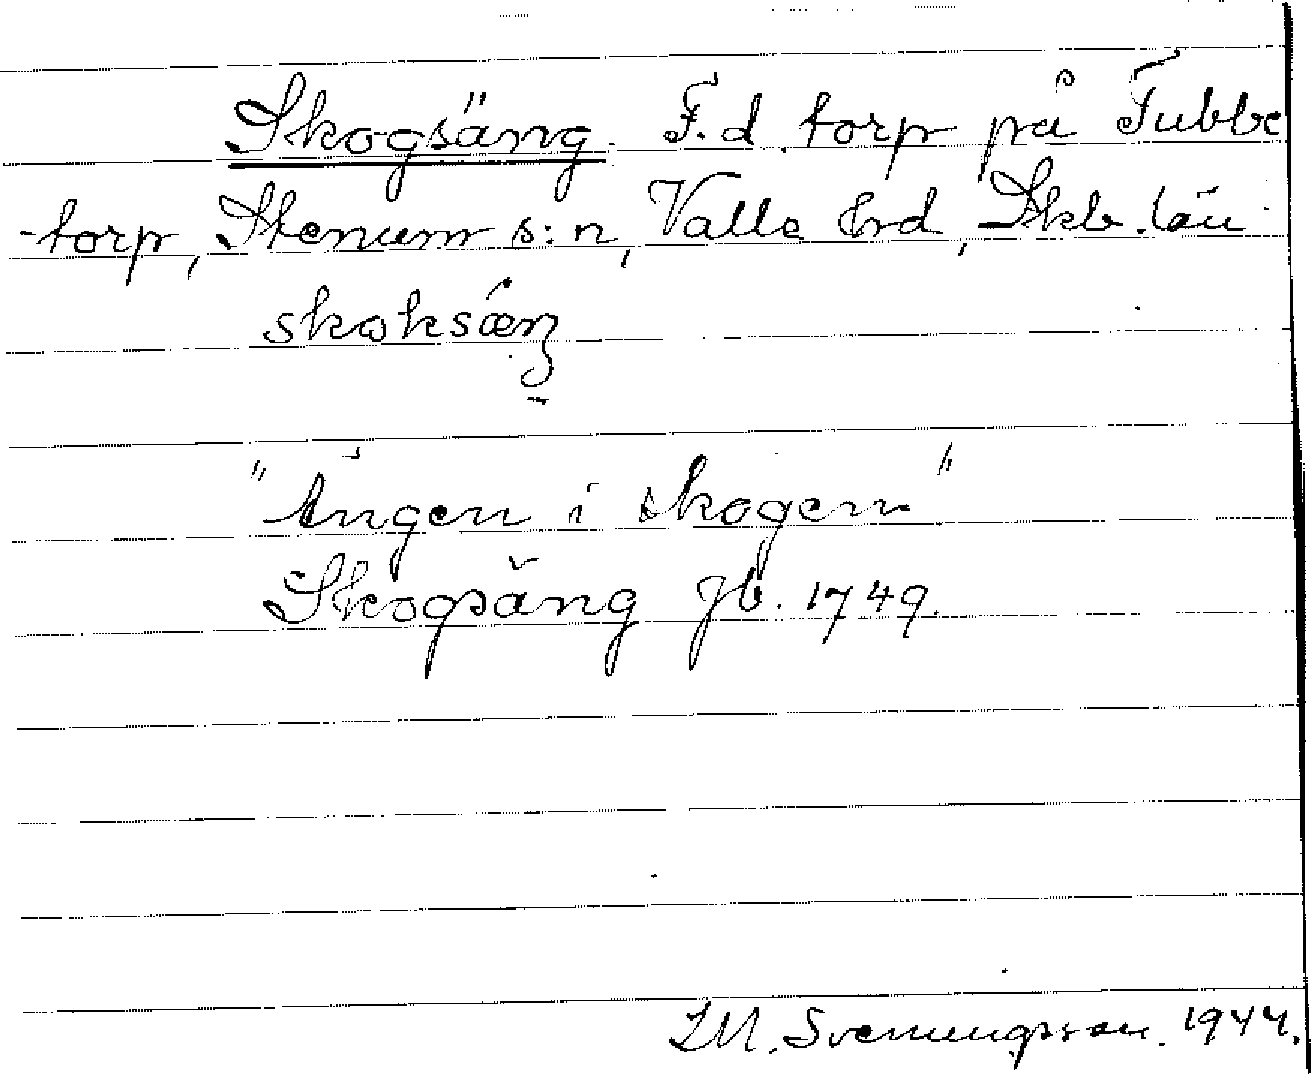 Skogsäng. F.d. torp på Tubbe
-torp, Stenum s:n, Valle hrd, Skb. län
skoksæŋ
"Ängen i skogen"
Skogsäng Jb. 1749.
LM. Svenungsson. 1944.